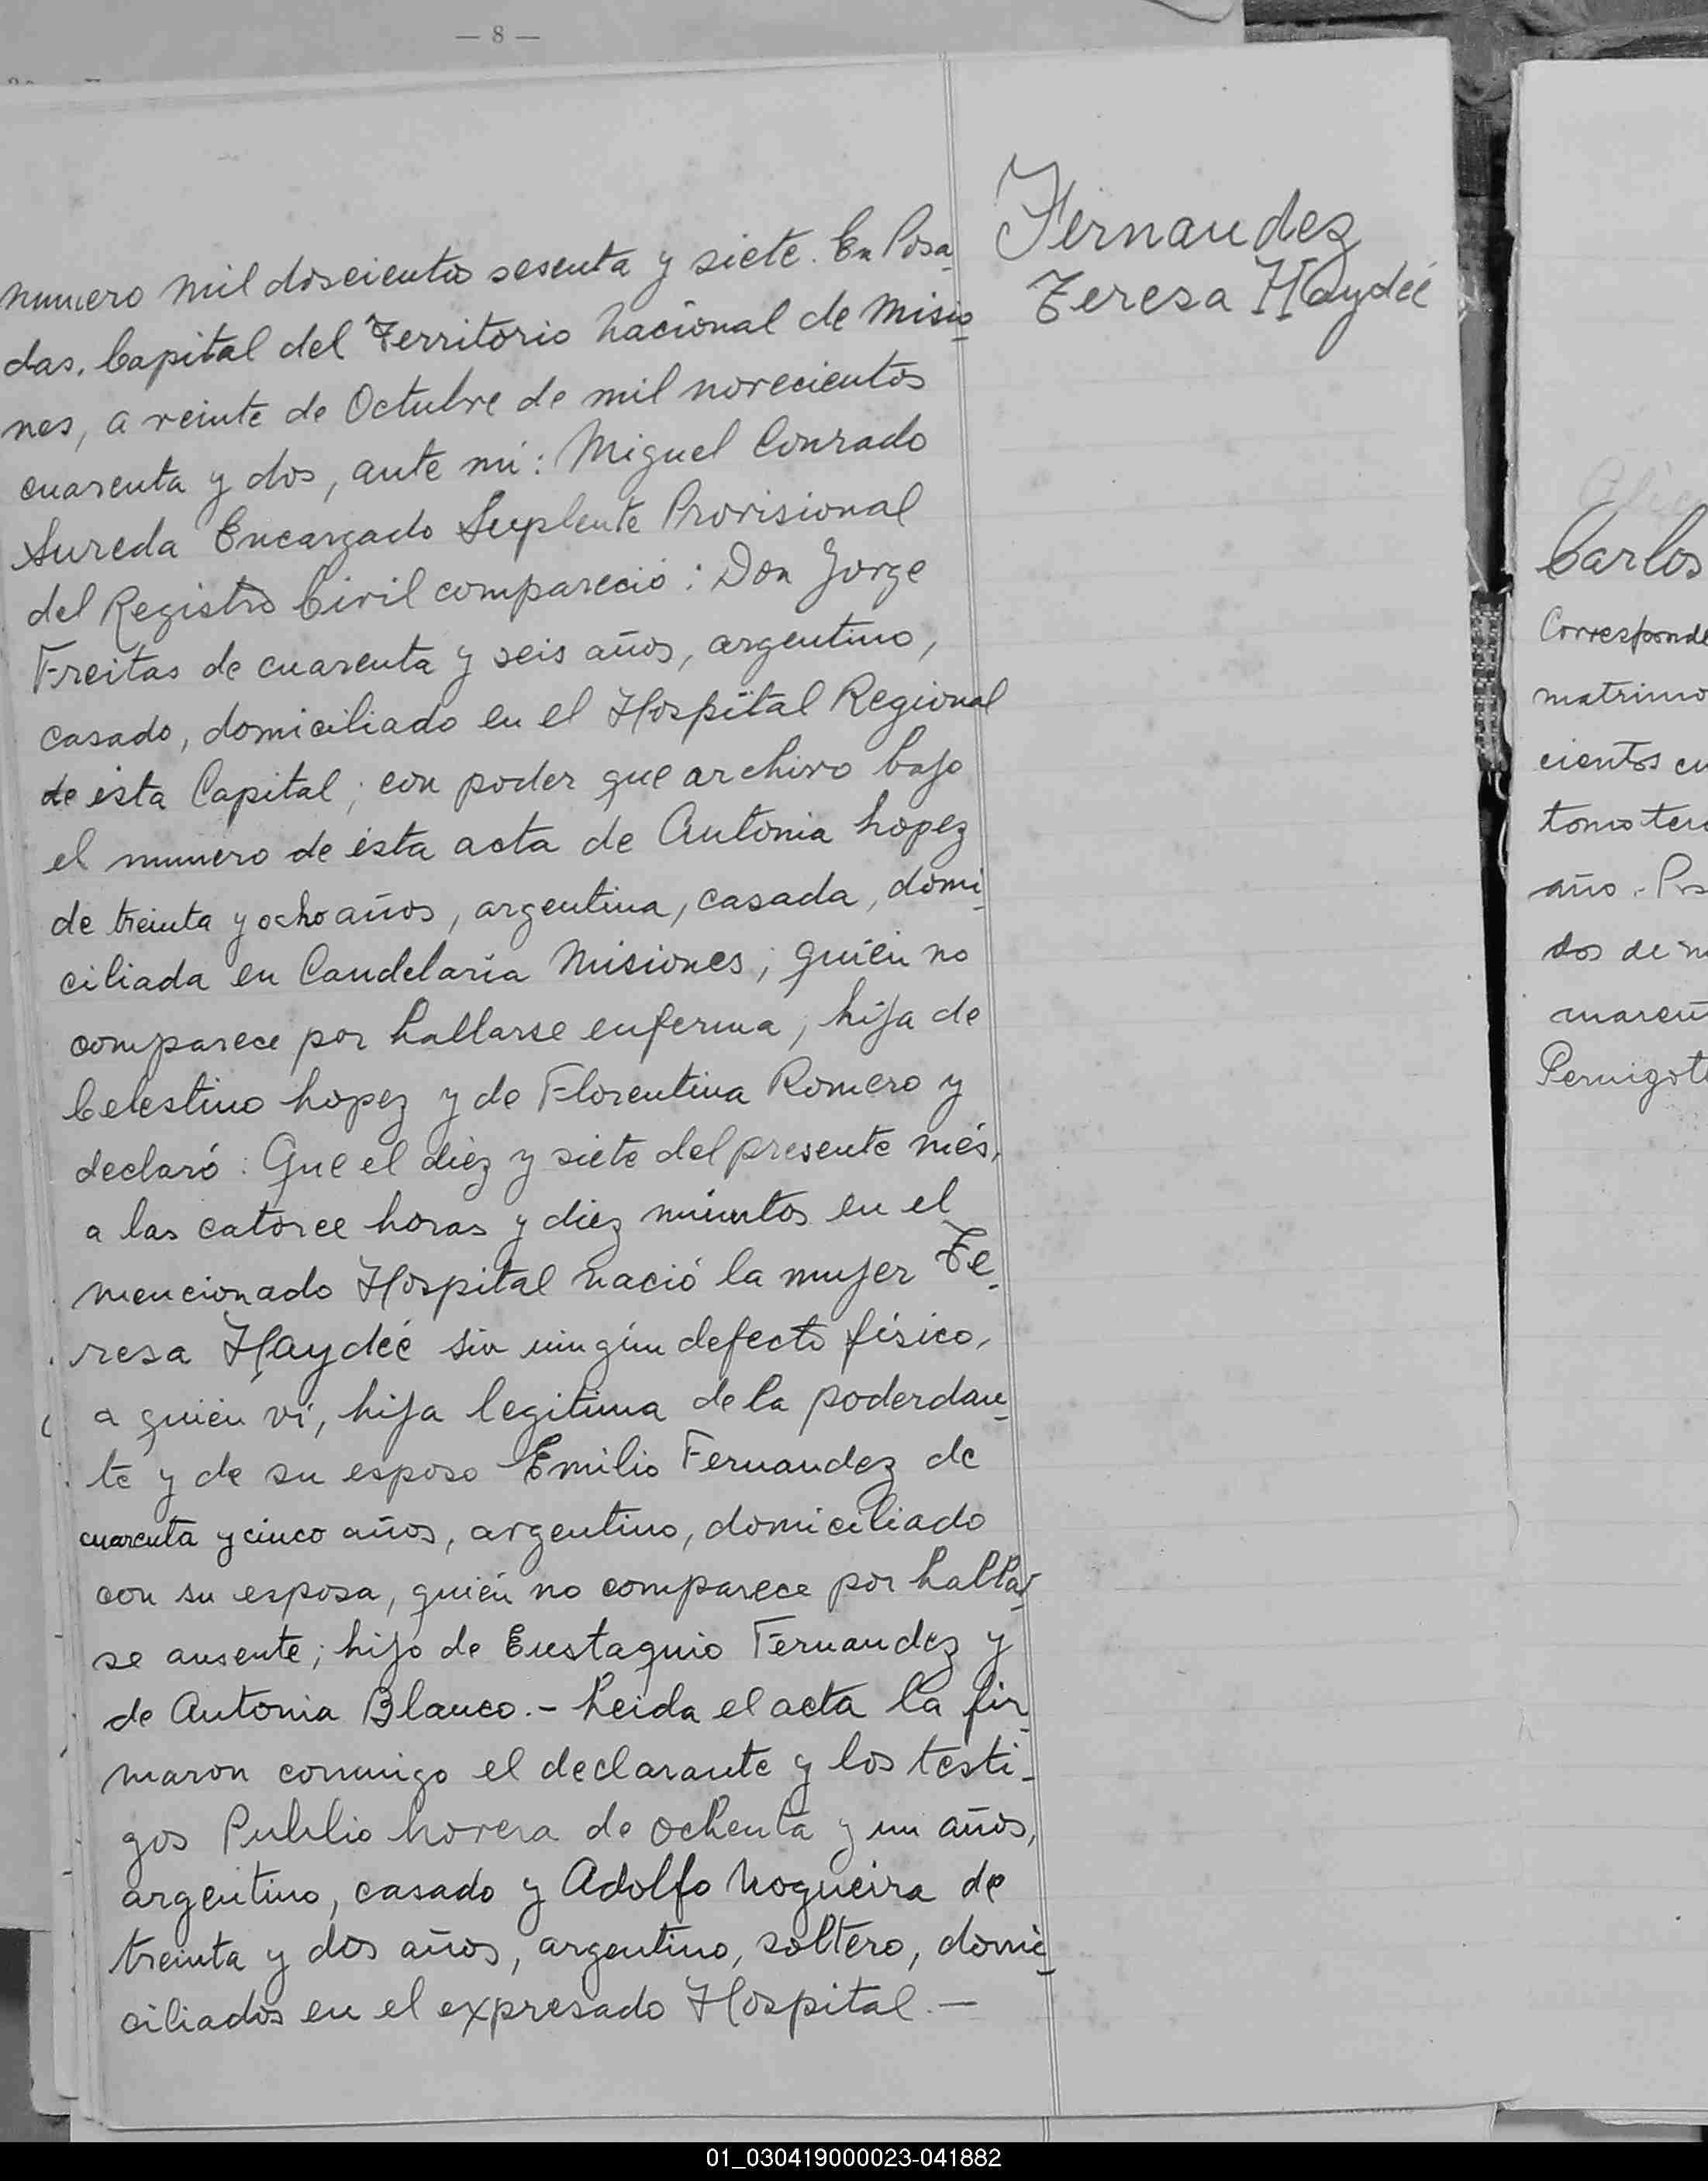 — 8 —
numero mil doscientos sesenta y siete. En Posa-
das, Capital del Territorio Nacional de Misio-
nes, a veinte de Octubre de mil novecientos
cuarenta y dos, ante mi: Miguel Conrado
Sureda Encargado Suplente Provisional
del Registro Civil compareció: Don Jorge
Freitas de cuarenta y seis años, argentino,
casado, domiciliado en el Hospital Regional
de ésta Capital; con poder que archivo bajo
el numero de ésta acta de Antonia Lopez
de treinta y ocho años, argentina, casada, domi-
ciliada en Candelaria Misiones; quién no
comparece por hallarse enferma, hija de
Celestino Lopez y de Florentina Romero y
declaró: Que el diéz y siete del presente més,
a las catorce horas y diez minutos en el
mencionado Hospital nació la mujer Te-
resa Haydée sin ningún defecto físico,
a quién ví, hija legitima de la poderdan-
te y de su esposo Emilio Fernandez de
cuarenta y cinco años, argentino, domiciliado
con su esposa, quién no comparece por hallar-
se ausente; hijo de Eustaquio Fernandez y
de Antonia Blanco.- Leida el acta la fir-
maron conmigo el declarante y los testi-
gos Publio Lovera de ochenta y un años,
argentino, casado y Adolfo Nogueira de
treinta y dos años, argentino, soltero, domi-
ciliados en el expresado Hospital.—
Fernandez
Teresa Haydée
Carlos
Corresponde
matrimo
cientos cu
tomo terc
año. Pos
dos de m
cuaren
Pernigott
01_030419000023-041882